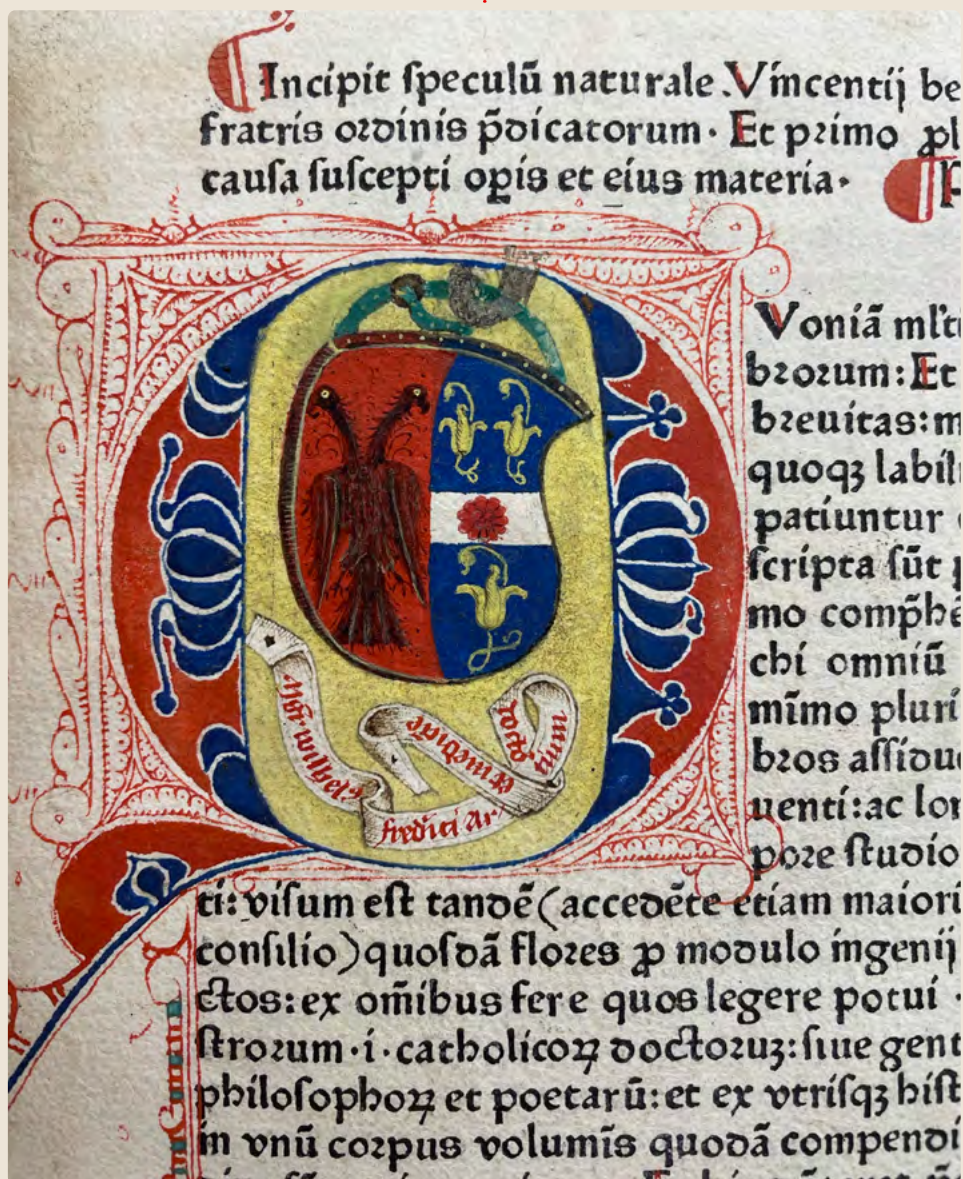 Incipit ſpeculū naturale .Vincentij be
fratris ordinis p̄dicatorum· Et primo ꝓl
cauſa ſuſcepti opis et eius materia·
Voniā ml't
brorum: Et
breuitas: m
quoqꝫ labil
patiuntur
ſcripta ſūt p
mo comp̄hē
chi omniū
mīmo pluri
bros aſſidu
uenti: ac lon
pore ſtudio
ti: viſum eſt tandē (accedēte etiam maiori
conſilio) quoſdā flores ꝓ modulo ingenij
ctos: ex om̄ibus fere quos legere potui ·
ſtrorum ·i· catholicoꝝ doctoruꝫ: ſiue gent
philoſophoꝝ et poetarū: et ex vtriſqꝫ hiſt
in vnū corpus volumīs quodā compendi
wilhel
fredici Ar
tium